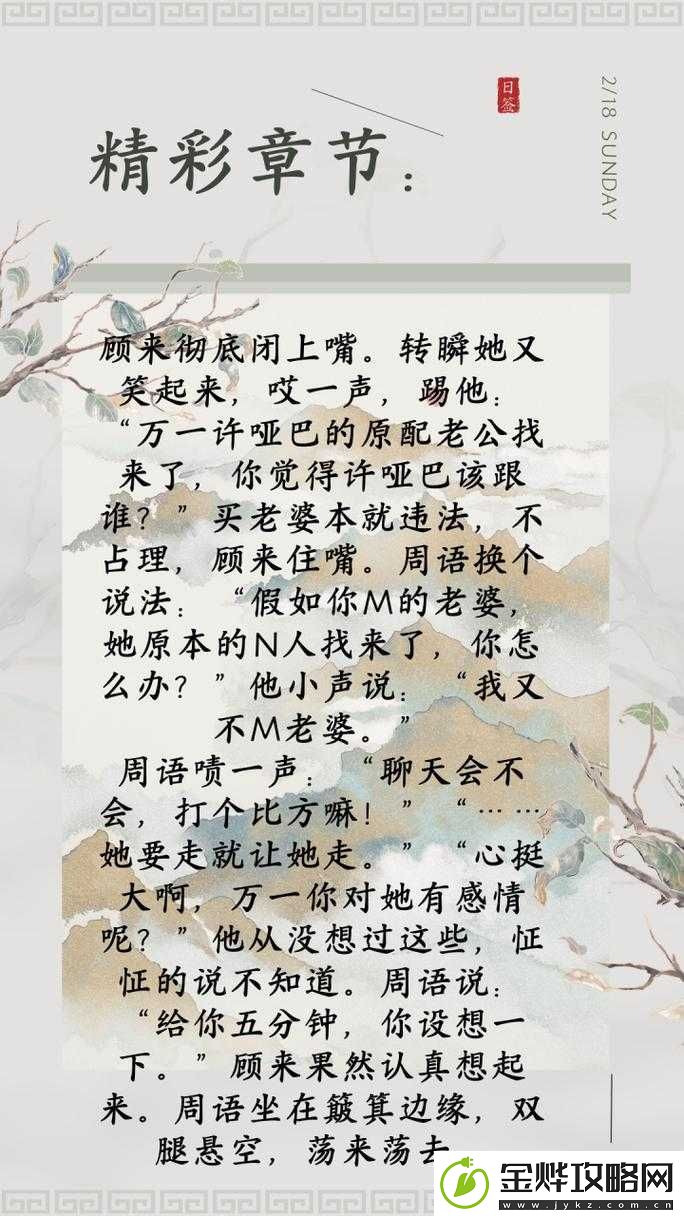 日签
2/18 SUNDAY
精彩章节：
顾来彻底闭上嘴。转瞬她又
笑起来，哎一声，踢他：
“万一许哑巴的原配老公找
来了，你觉得许哑巴该跟
谁？”买老婆本就违法，不
占理，顾来住嘴。周语换个
说法：“假如你M的老婆，
她原本的N人找来了，你怎
么办？”他小声说：“我又
不M老婆。”
周语啧一声：“聊天会不
会，打个比方嘛！”“……
她要走就让她走。”“心挺
大啊，万一你对她有感情
呢？”他从没想过这些，怔
怔的说不知道。周语说：
“给你五分钟，你设想一
下。”顾来果然认真想起
来。周语坐在簸箕边缘，双
腿悬空，荡来荡去
金烨攻略网
www.jykz.com.cn